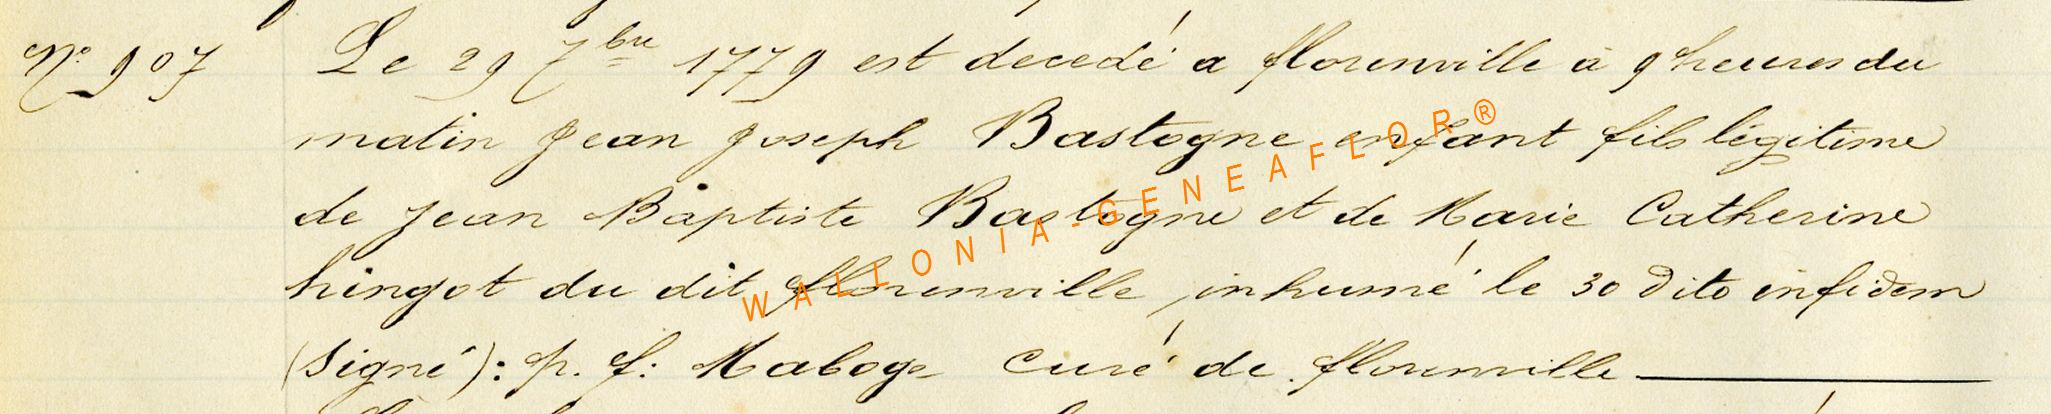 N° 907 Le 29 7bre 1779 est decedé a florenville à 9 heures du
matin Jean Joseph Bastogne enfant fils légitime
de Jean Baptiste Bastogne et de Marie Catherine
hingot du dit florenville, inhumé le 30 dito infidem
(Signé): p. f. Maboge Curé de florenville
WALLONIA-GENEAFLOR®